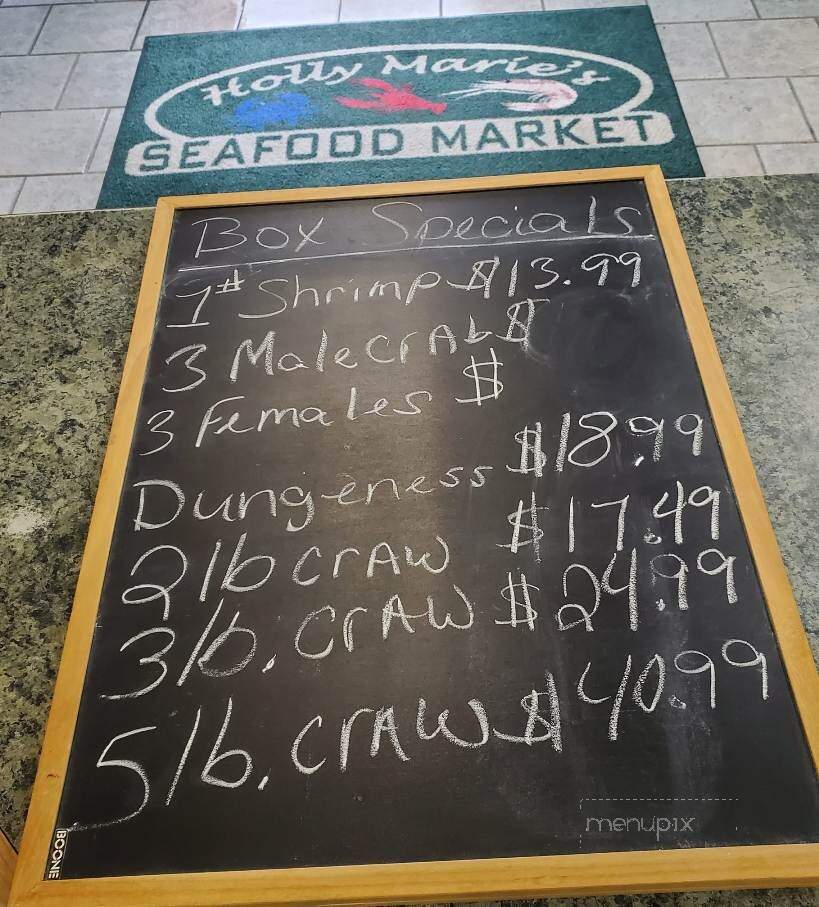 Holly Marie's
SEAFOOD MARKET
Box Specials
1# Shrimp $13.99
3 Male crAb $
3 Females $
Dungeness $18.99
2lb crAW $17.49
3lb. CrAW $24.99
5lb. CrAW $40.99
menupix
BOONE